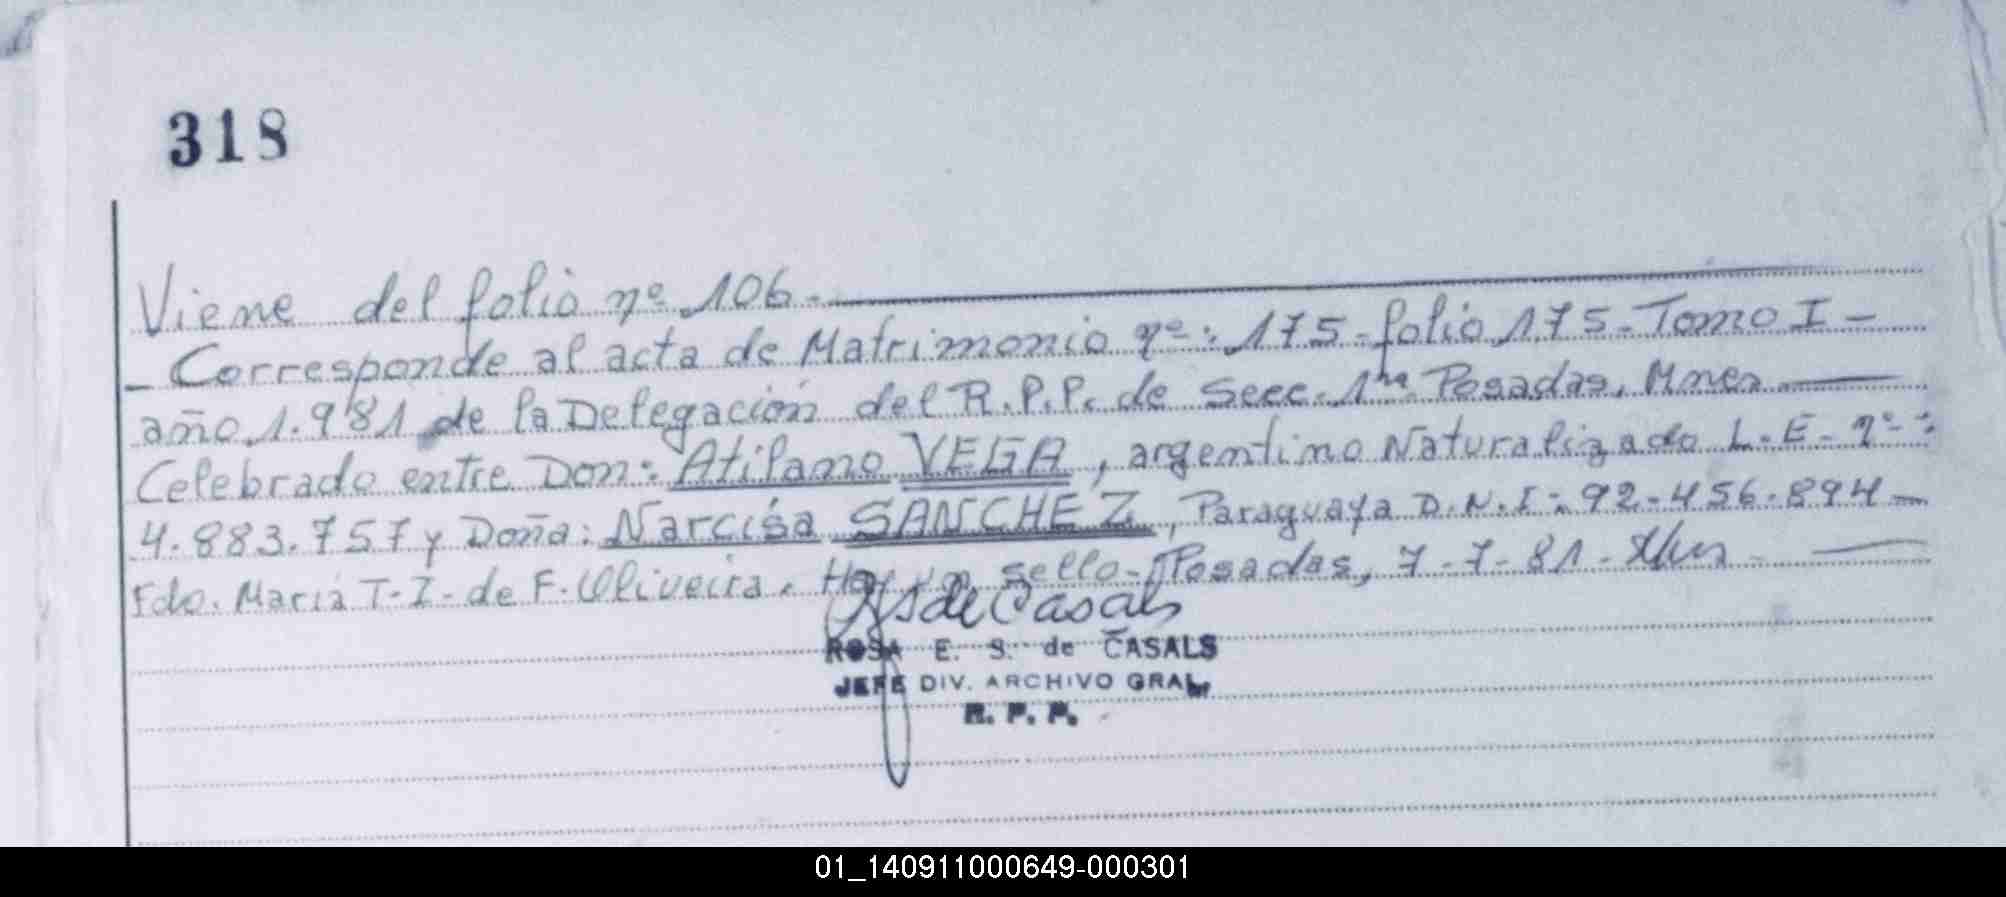 318
Viene del folio nº 106.
- Corresponde al acta de Matrimonio nº: 175 - folio 175 - Tomo I -
año 1.981 de la Delegación del R.P.P. de Secc. 1ra Posadas, Mnes
Celebrado entre Don: Atilano VEGA, argentino Naturalizado L.E. nº:
4.883.757 y Doña: Narcisa SANCHEZ, Paraguaya D.N.I: 92-456.894-
Fdo. María T. I. de F. Oliveira. Hay un sello - Posadas, 7-7-81-
RSdeCasals
ROSA E. S. de CASALS
JEFE DIV. ARCHIVO GRAL.
R. P. P.
01_140911000649-000301